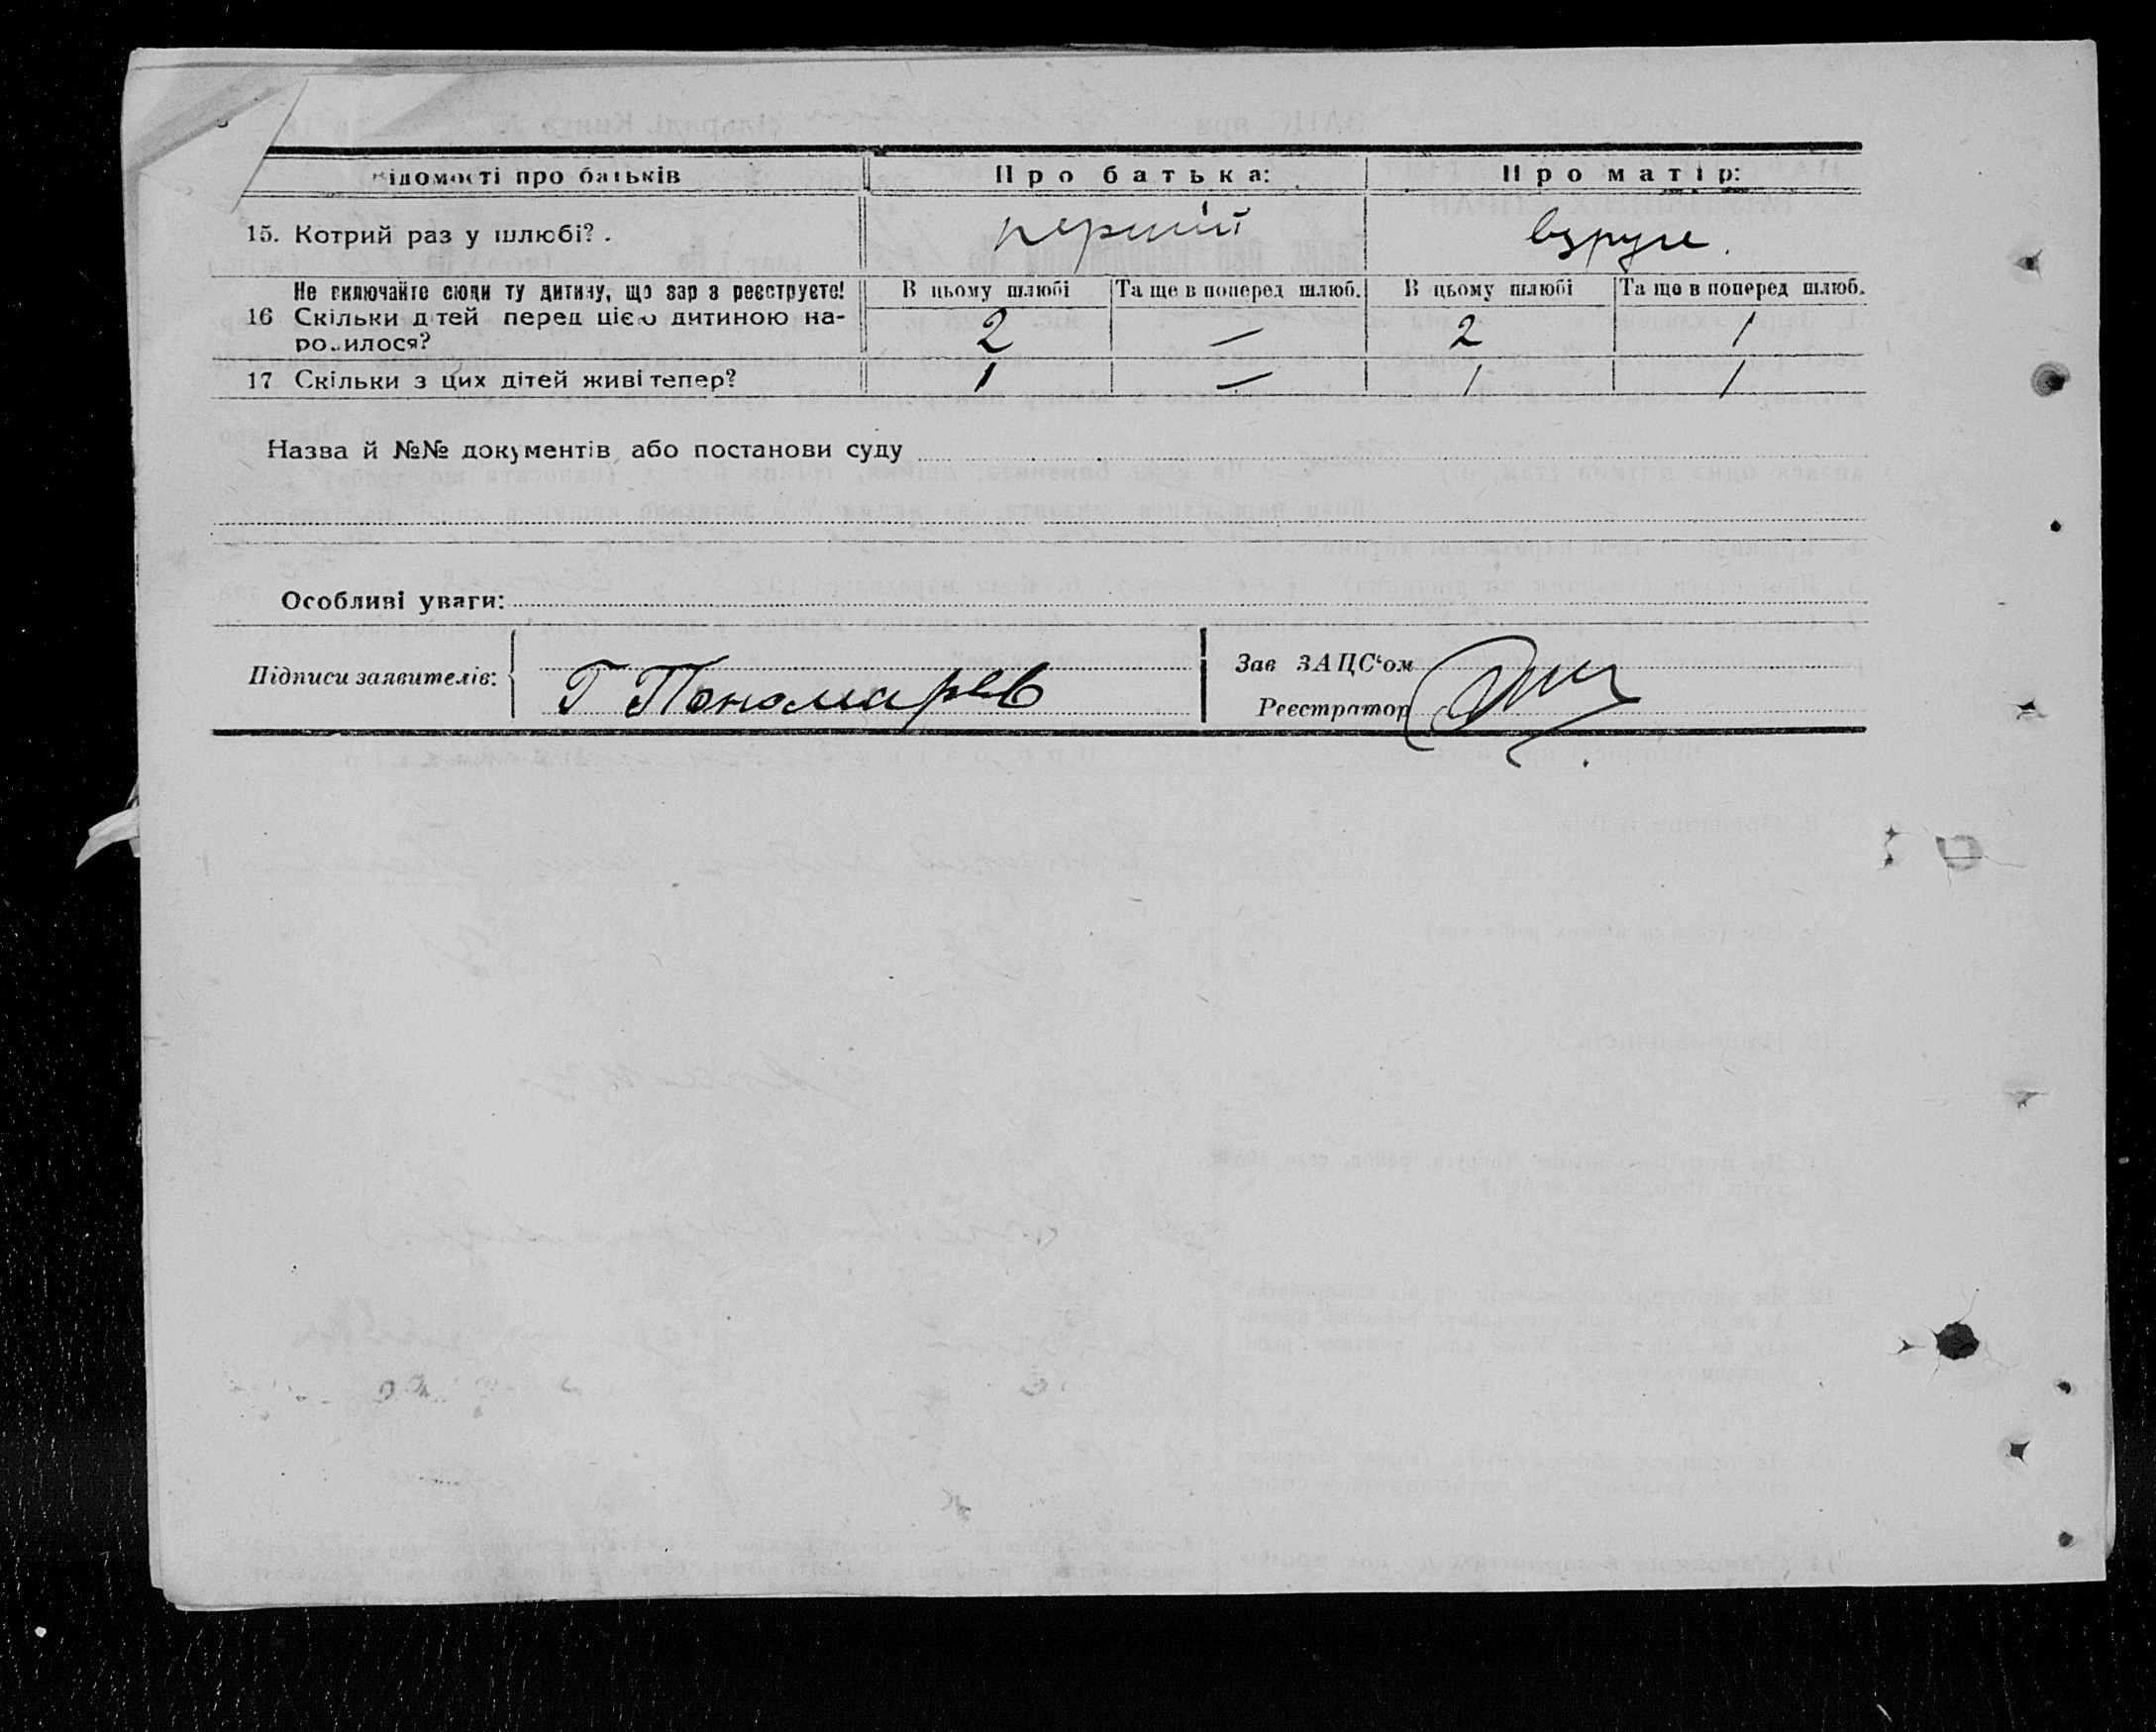 ідомості про батьків Про батька: Про матір:
15. Котрий раз у шлюбі? . перший вдруге.
Не включайте сюди ту дитину, що зараз реєструєте! В цьому шлюбі Та ще в поперед шлюб. В цьому шлюбі Та ще в поперед шлюб.
16 Скільки дітей перед цією дитиною на- 2 — 2 1
родилося?
17 Скільки з цих дітей живі тепер? 1 — 1 1
Назва й №№ документів або постанови суду
Особливі уваги:
Підписи заявителів: Г Пономарев
Зав ЗАЦС‘ом
Реєстратор